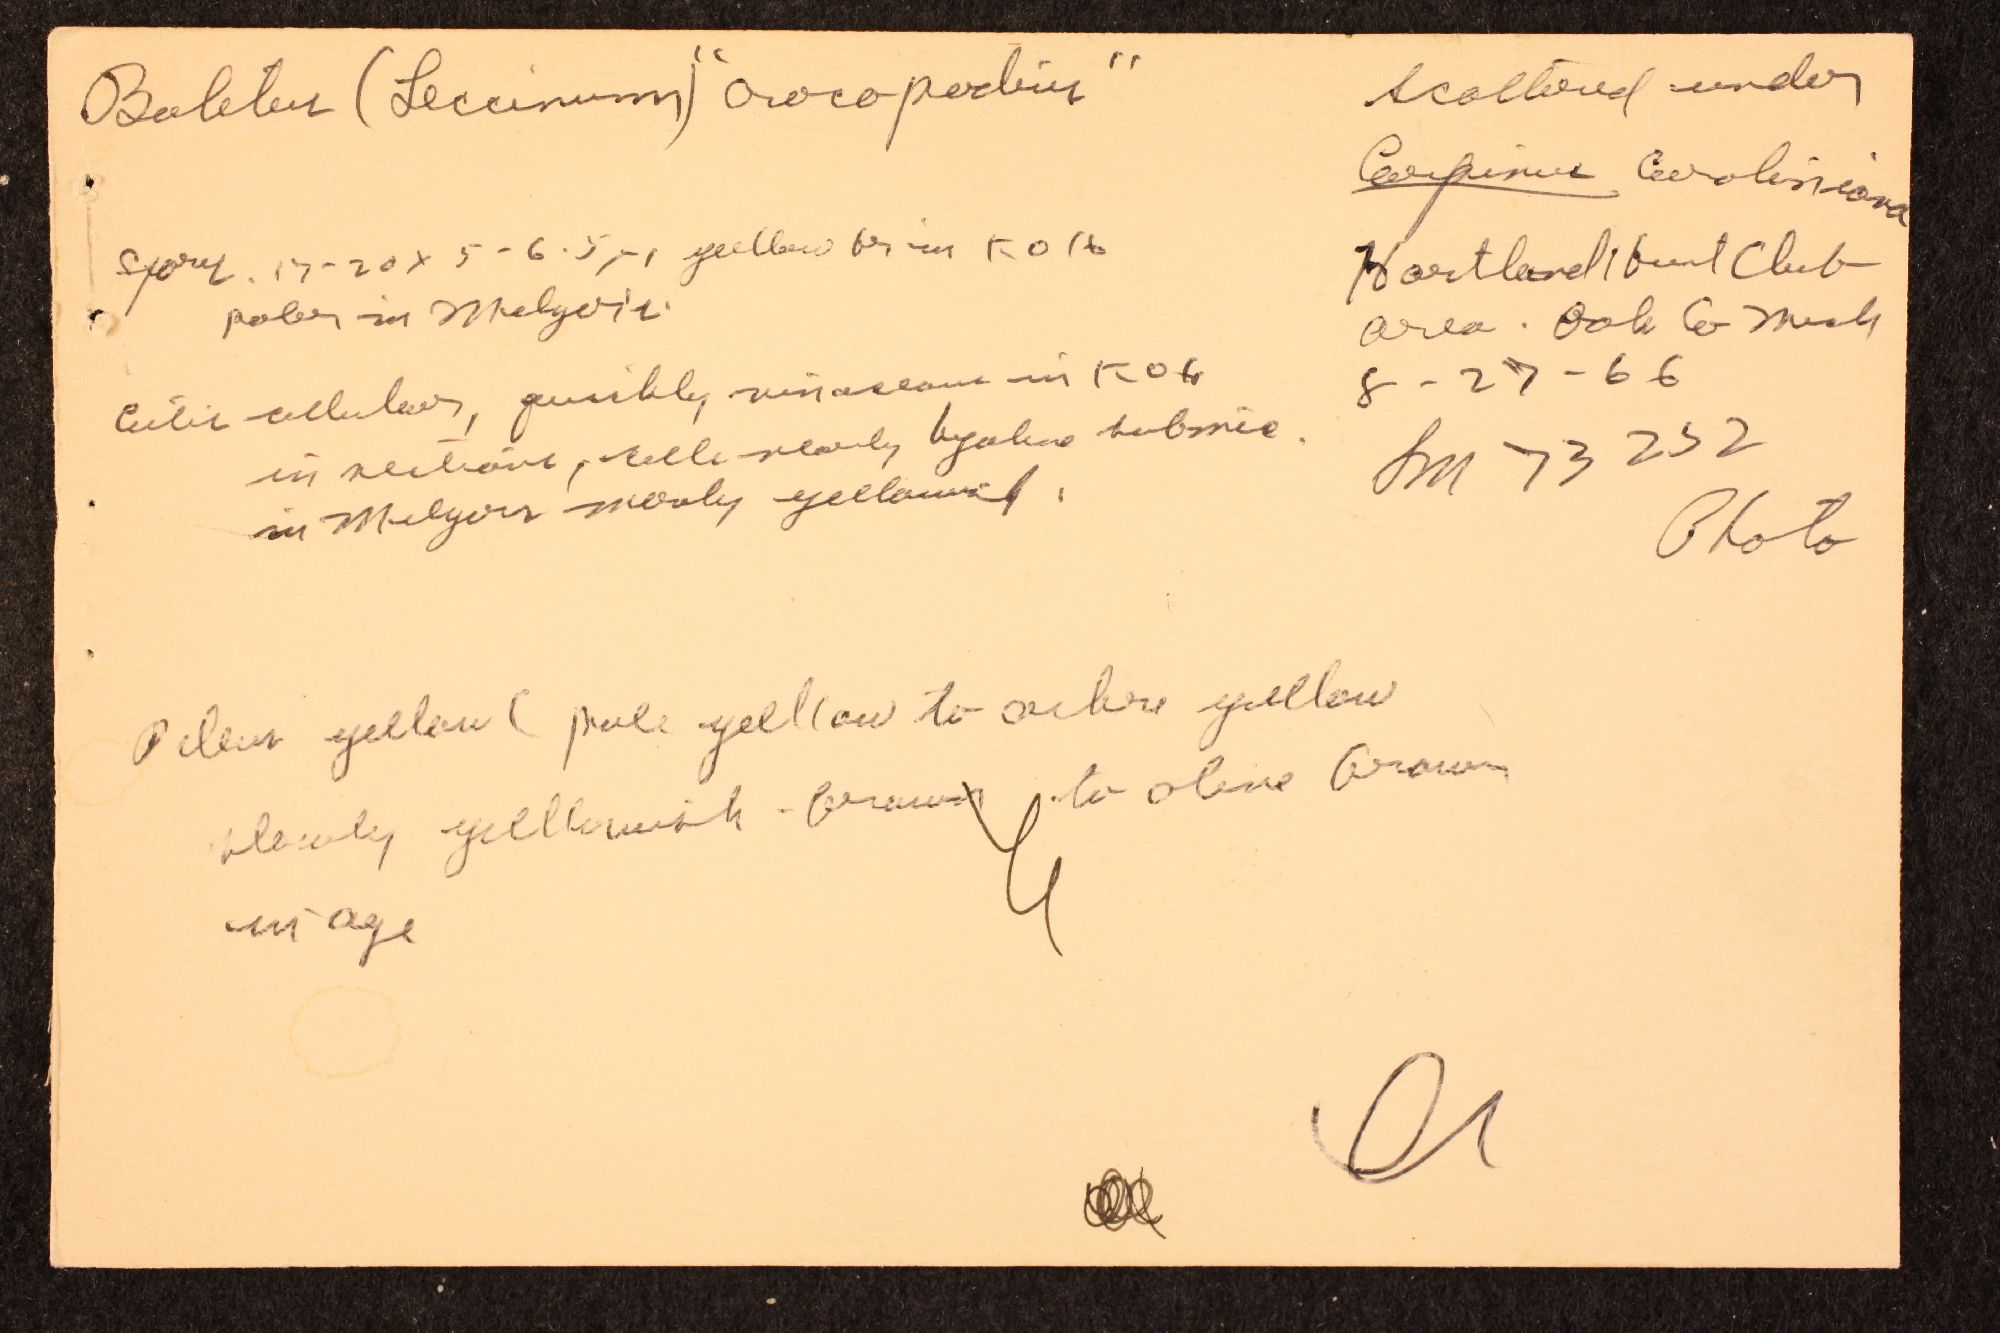 Boletus (Leccinum) "crocopodius"
Spores 17-20 x 5-6.5 μ, yellow br in KOH
paler in Melzer's.
Cutis cellular, quickly vinaceous in KOH
in sections, cells nearly hyaline submic.
in Melzers merely yellowish.
Pileus yellow (pale yellow to ochre yellow
slowly yellowish-brown to olive brown
in age
Scattered under
Carpinus Caroliniana
Hartland Hunt Club
area. Oak Co Mich
8-27-66
Sm 73252
Photo